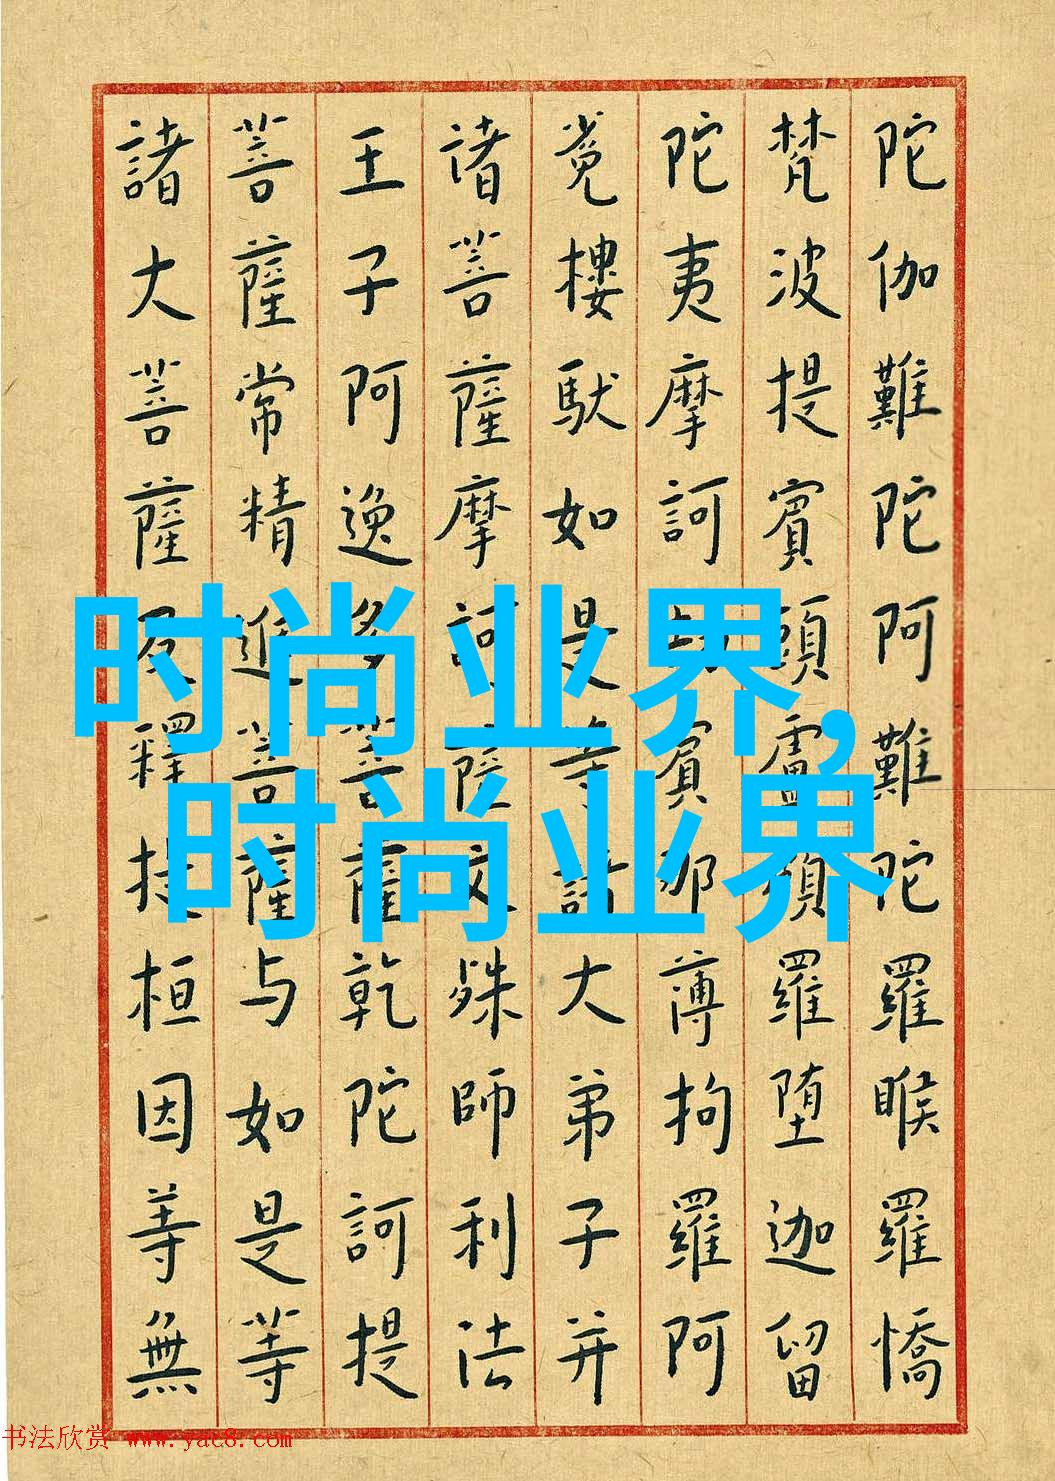 陀伽難陀阿難陀羅睺羅憍
梵波提賓頭盧頗羅堕迦留
陀夷摩訶劫賓那薄拘羅阿
㝹樓馱如是等諸大弟子并
诸菩薩摩訶薩文殊師利法
王子阿逸多菩薩乾陀訶提
菩薩常精進菩薩与如是等
諸大菩薩及釋提桓因等無
时尚业界,
时尚业界
书法欣赏 www.yac8.com